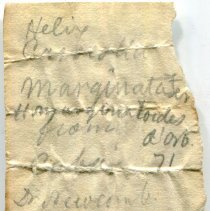 Helix
Marginata
H. marginatoides
from d'Orb
Cuba. 71
Dr Newcomb.